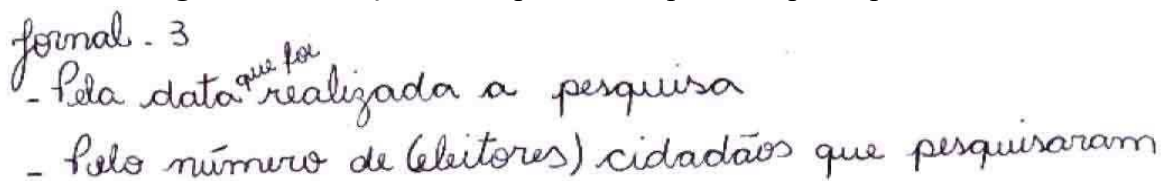 Jornal. 3
- Pela data que foi realizada a pesquisa
- Pelo número de (eleitores) cidadãos que pesquisaram